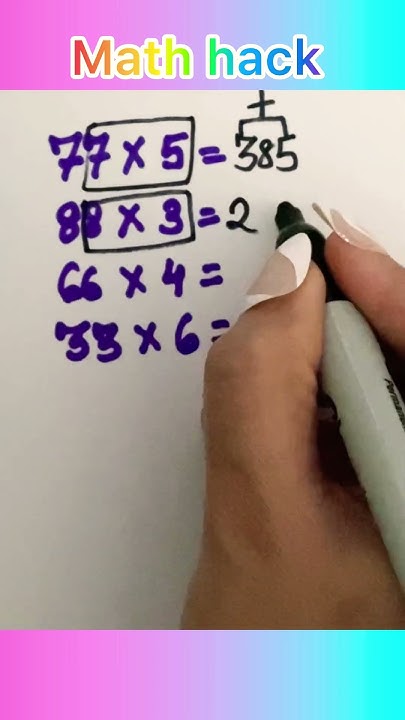 Math hack
+
77 × 5 = 385
88 × 3 = 2
66 × 4 =
33 × 6 =